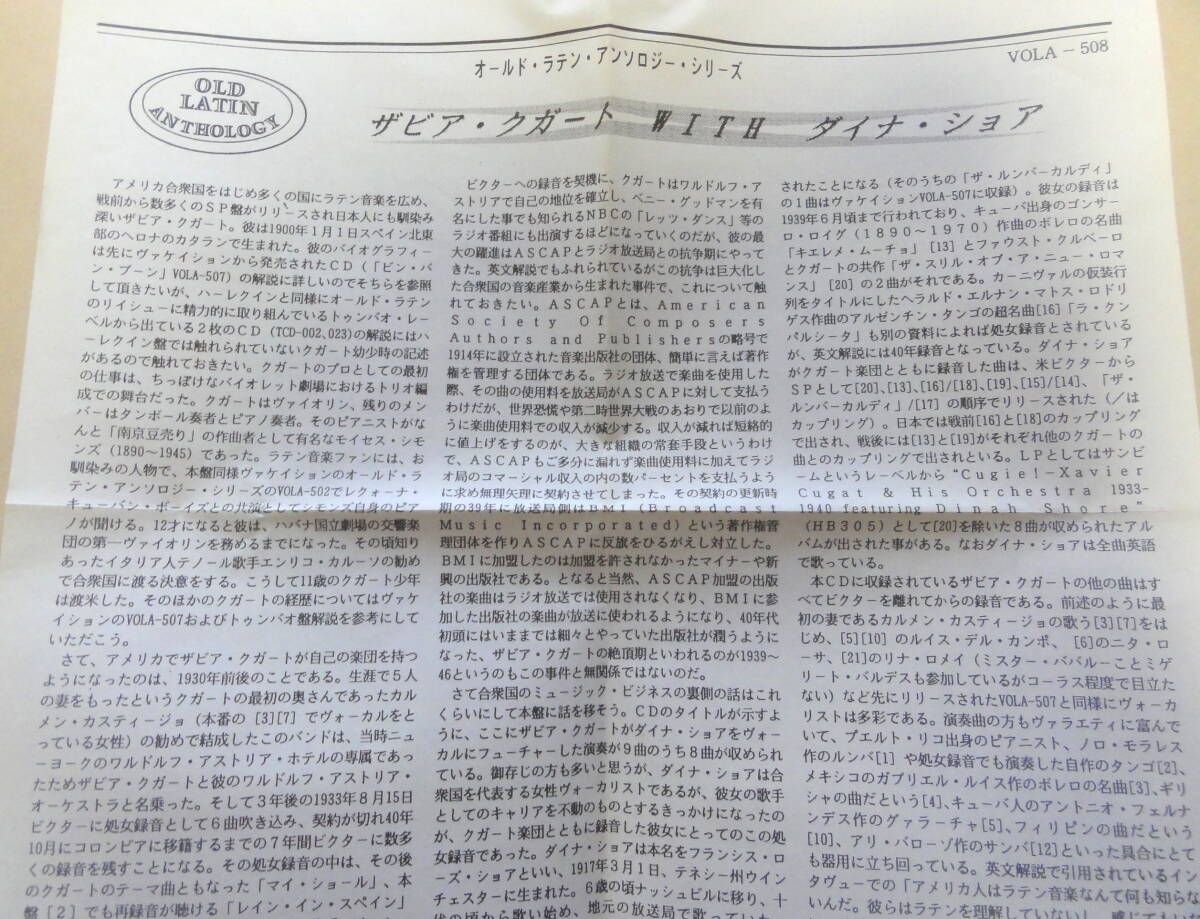 VOLA－508
オールド・ラテン・アンソロジー・シリーズ
OLD
LATIN
ANTHOLOGY
ザビア・クガート WITH ダイナ・ショア
アメリカ合衆国をはじめ多くの国にラテン音楽を広め、
戦前から数多くのＳＰ盤がリリースされ日本人にも馴染み
深いザビア・クガート。彼は1900年１月１日スペイン北東
部のヘロナのカタランで生まれた。彼のバイオグラフィー
は先にヴァケイションから発売されたＣＤ（「ビン・バ
ン・ブーン」VOLA-507）の解説に詳しいのでそちらを参照
して頂きたいが、ハーレクインと同様にオールド・ラテン
のリイシューに精力的に取り組んでいるトゥンバオ・レー
ベルから出ている２枚のＣＤ（TCD-002,023）の解説にはハ
ーレクイン盤では触れられていないクガート幼少時の記述
があるので触れておきたい。クガートのプロとしての最初
の仕事は、ちっぽけなバイオレット劇場におけるトリオ編
成での舞台だった。クガートはヴァイオリン、残りのメン
バーはタンボール奏者とピアノ奏者。そのピアニストがな
んと「南京豆売り」の作曲者として有名なモイセス・シモ
ンズ（1890～1945）であった。ラテン音楽ファンには、お
馴染みの人物で、本盤同様ヴァケイションのオールド・ラ
テン・アンソロジー・シリーズのVOLA-502でレクォーナ・
キューバン・ボーイズとの共演としてシモンズ自身のピア
ノが聞ける。12才になると彼は、ハバナ国立劇場の交響楽
団の第一ヴァイオリンを務めるまでになった。その頃知り
あったイタリア人テノール歌手エンリコ・カルーソの勧め
で合衆国に渡る決意をする。こうして11歳のクガート少年
は渡米した。そのほかのクガートの経歴についてはヴァケ
イションのVOLA-507およびトゥンバオ盤解説を参考にして
いただこう。
さて、アメリカでザビア・クガートが自己の楽団を持つ
ようになったのは、1930年前後のことである。生涯で５人
の妻をもったというクガートの最初の奥さんであったカル
メン・カスティージョ（本番の [3][7] でヴォーカルをと
っている女性）の勧めで結成したこのバンドは、当時ニュ
ーヨークのワルドルフ・アストリア・ホテルの専属であっ
たためザビア・クガートと彼のワルドルフ・アストリア・
オーケストラと名乗った。そして３年後の1933年８月15日
ビクターに処女録音として６曲吹き込み、契約が切れ40年
10月にコロンビアに移籍するまでの７年間ビクターに数多
くの録音を残すことになる。その処女録音の中は、その後
のクガートのテーマ曲ともなった「マイ・ショール」、本
盤［2］でも再録音が聴ける「レイン・イン・スペイン」
ビクターへの録音を契機に、クガートはワルドルフ・ア
ストリアで自己の地位を確立し、ベニー・グッドマンを有
名にした事でも知られるＮＢＣの「レッツ・ダンス」等の
ラジオ番組にも出演するほどになっていくのだが、彼の最
大の躍進はＡＳＣＡＰとラジオ放送局との抗争期にやって
きた。英文解説でもふれられているがこの抗争は巨大化し
た合衆国の音楽産業から生まれた事件で、これについて触
れておきたい。ＡＳＣＡＰとは、American
Society Of Composers
Authors and Publishersの略号で
1914年に設立された音楽出版社の団体、簡単に言えば著作
権を管理する団体である。ラジオ放送で楽曲を使用した
際、その曲の使用料を放送局がＡＳＣＡＰに対して支払う
わけだが、世界恐慌や第二時世界大戦のあおりで以前のよ
うに楽曲使用料での収入が減少する。収入が減れば短絡的
に値上げをするのが、大きな組織の常套手段というわけ
で、ＡＳＣＡＰもご多分に漏れず楽曲使用料に加えてラジ
オ局のコマーシャル収入の内の数パーセントを支払うよう
に求め無理矢理に契約させてしまった。その契約の更新時
期の39年に放送局側はＢＭＩ（Broadcast
Music Incorporated）という著作権管
理団体を作りＡＳＣＡＰに反旗をひるがえし対立した。
ＢＭＩに加盟したのは加盟を許されなかったマイナーや新
興の出版社である。となると当然、ＡＳＣＡＰ加盟の出版
社の楽曲はラジオ放送では使用されなくなり、ＢＭＩに参
加した出版社の楽曲が放送に使われるようになり、40年代
初頭にはいままでは細々とやっていた出版社が潤うように
なった、ザビア・クガートの絶頂期といわれるのが1939～
46というのもこの事件と無関係ではないのだ。
さて合衆国のミュージック・ビジネスの裏側の話はこれ
くらいにして本盤に話を移そう。ＣＤのタイトルが示すよ
うに、ここにザビア・クガートがダイナ・ショアをヴォー
カルにフューチャーした演奏が９曲のうち８曲が収められ
ている。御存じの方も多いと思うが、ダイナ・ショアは合
衆国を代表する女性ヴォーカリストであるが、彼女の歌手
としてのキャリアを不動のものとするきっかけになったの
が、クガート楽団とともに録音した彼女にとってのこの処
女録音であった。ダイナ・ショアは本名をフランシス・ロ
ーズ・ショアといい、1917年３月１日、テネシー州ウイン
チェスターに生まれた。６歳の頃ナッシュビルに移り、十
代の頃から歌い始め、地元の放送局で歌っていた
されたことになる（そのうちの「ザ・ルンバーカルディ」
の１曲はヴァケイションVOLA-507に収録）。彼女の録音は
1939年６月頃まで行われており、キューバ出身のゴンサー
ロ・ロイグ（１８９０～１９７０）作曲のボレロの名曲
「キエレメ・ムーチョ」 [13] とファウスト・クルベーロ
とクガートの共作「ザ・スリル・オブ・ア・ニュー・ロマ
ンス」 [20] の２曲がそれである。カーニヴァルの仮装行
列をタイトルにしたヘラルド・エルナン・マトス・ロドリ
ゲス作曲のアルゼンチン・タンゴの超名曲[16]「ラ・クン
パルシータ」も別の資料によれば処女録音とされている
が、英文解説には40年録音となっている。ダイナ・ショア
がクガート楽団とともに録音した曲は、米ビクターから
ＳＰとして[20]、[13]、[16]/[18]、[19]、[15]/[14]、「ザ・
ルンバーカルディ」/[17] の順序でリリースされた（／は
カップリング）。日本では戦前[16]と[18]のカップリング
で出され、戦後には[13]と[19]がそれぞれ他のクガートの
曲とのカップリングで出されといる。ＬＰとしてはサンビ
ームというレーベルから“Cugie!－Xavier
Cugat & His Orchestra 1933-
1940 featuring Dinah Shore”
（HB305）として[20]を除いた８曲が収められたアル
バムが出された事がある。なおダイナ・ショアは全曲英語
で歌っている。
本ＣＤに収録されているザビア・クガートの他の曲はす
べてビクターを離れてからの録音である。前述のように最
初の妻であるカルメン・カスティージョの歌う[3][7]をは
じめ、[5][10] のルイス・デル・カンポ、 [6]のニタ・ロ
ーサ、[21]のリナ・ロメイ（ミスター・ババルーことミゲ
リート・バルデスも参加しているがコーラス程度で目立た
ない）など先にリリースされたVOLA-507と同様にヴォーカ
リストは多彩である。演奏曲の方もヴァラエティに富んで
いて、プエルト・リコ出身のピアニスト、ノロ・モラレス
作のルンバ[1] や処女録音でも演奏した自作のタンゴ[2]、
メキシコのガブリエル・ルイス作のボレロの名曲[3]、ギリ
シャの曲だという[4]、キューバ人のアントニオ・フェルナ
ンデス作のグァラーチャ[5]、フィリピンの曲だという
[10]、アリ・バローゾ作のサンバ[12]といった具合にとて
も器用に立ち回っている。英文解説で引用されているイン
タヴューでの「アメリカ人はラテン音楽なんて何も知らな
いんだ。彼らはラテンを理解していないし、